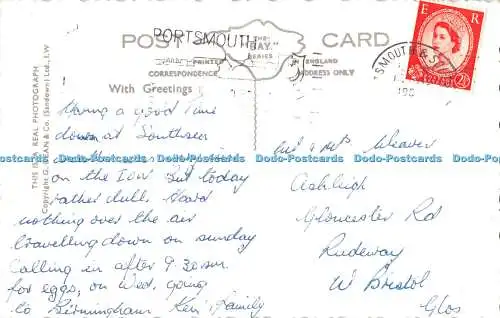 POST CARD
PORTSMOUTH
THE "BAY" SERIES
PRINTED
ENGLAND
CORRESPONDENCE
ADDRESS ONLY
With Greetings
THIS IS A REAL PHOTOGRAPH
Copyright G. DEAN & Co. (Sandown) Ltd., I.W
E R
POSTAGE
2½
SMOUTH & S
196
Having a good time
down at Southsea
on the IOW But today
rather dull. Heard
nothing over the air
travelling down on sunday
Calling in after 9.30am
for eggs, on Wed, going
to Birmingham Ken & Family
Mr & Mrs Weaver
Ashleigh
Gloucester Rd
Rudgeway
Nr Bristol
Glos
Dodo-Postcards Dodo-Postcards Dodo-Postcards Dodo-Postcards Dodo-Postcards Dodo-Postcards